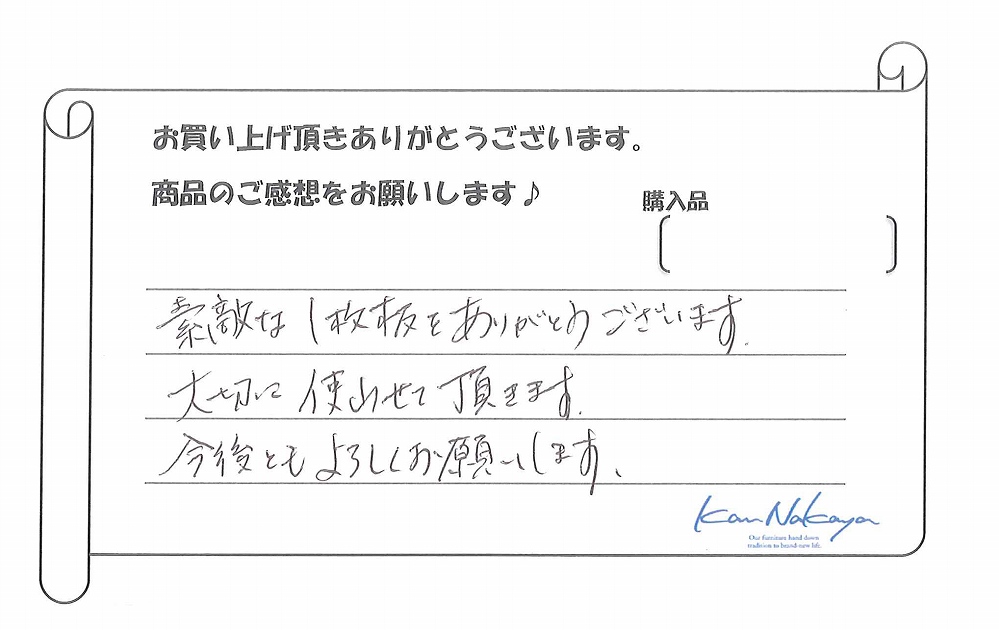 お買い上げ頂きありがとうございます。
商品のご感想をお願いします♪
購入品
素敵な1枚板をありがとうございます.
大切に使わせて頂きます.
今後ともよろしくお願いします、
Kan Nakaya
Our furniture hand down
tradition to brand-new life.